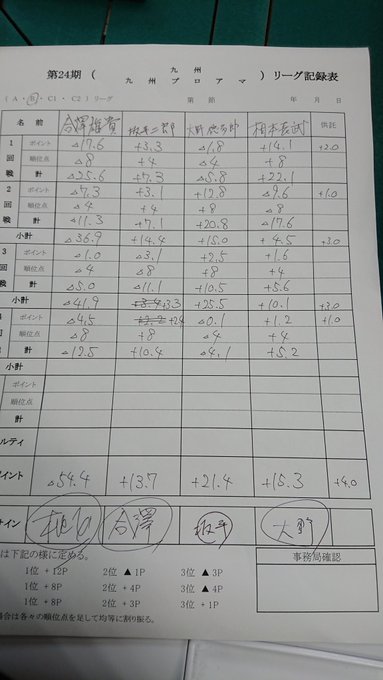 第24期 ( 九州 九州プロアマ ) リーグ記録表
( A ・ B ・ C1 ・ C2 ) リーグ 第 節 年 月 日
名前 合澤雄貴 坂平二郎 柏本 供託
1 ポイント △17.6 +3.3 △1.8 +14.1 +2.0
回 順位点 △8 +4 △4 +8
戦 計 △25.6 +7.3 △5.8 +22.1
2 ポイント △7.3 +3.1 +12.8 △9.6 +1.0
回 順位点 △4 +4 +8 △8
戦 計 △11.3 +7.1 +20.8 △17.6
小計 △36.9 +14.4 +15.0 +4.5 +3.0
3 ポイント △1.0 △3.1 +2.5 +1.6
回 順位点 △4 △8 +8 +4
戦 計 △5.0 △11.1 +10.5 +5.6
小計 △41.9 +3.3 +25.5 +10.1 +3.0
ポイント △4.5 +2.4 △0.1 +1.2 +1.0
順位点 △8 +8 △4 +4
計 △12.5 +10.4 △4.1 +5.2
小計
ポイント
順位点
計
ルティ
イント △54.4 +13.7 +21.4 +15.3 +4.0
サイン 柏本 合澤 坂平 大野
は下記の様に定める。 事務局確認
1位 + 12P 2位 ▲ 1P 3位 ▲ 3P
1位 + 8P 2位 + 4P 3位 ▲ 4P
1位 + 8P 2位 + 3P 3位 + 1P
場合は各々の順位点を足して均等に割り振る。